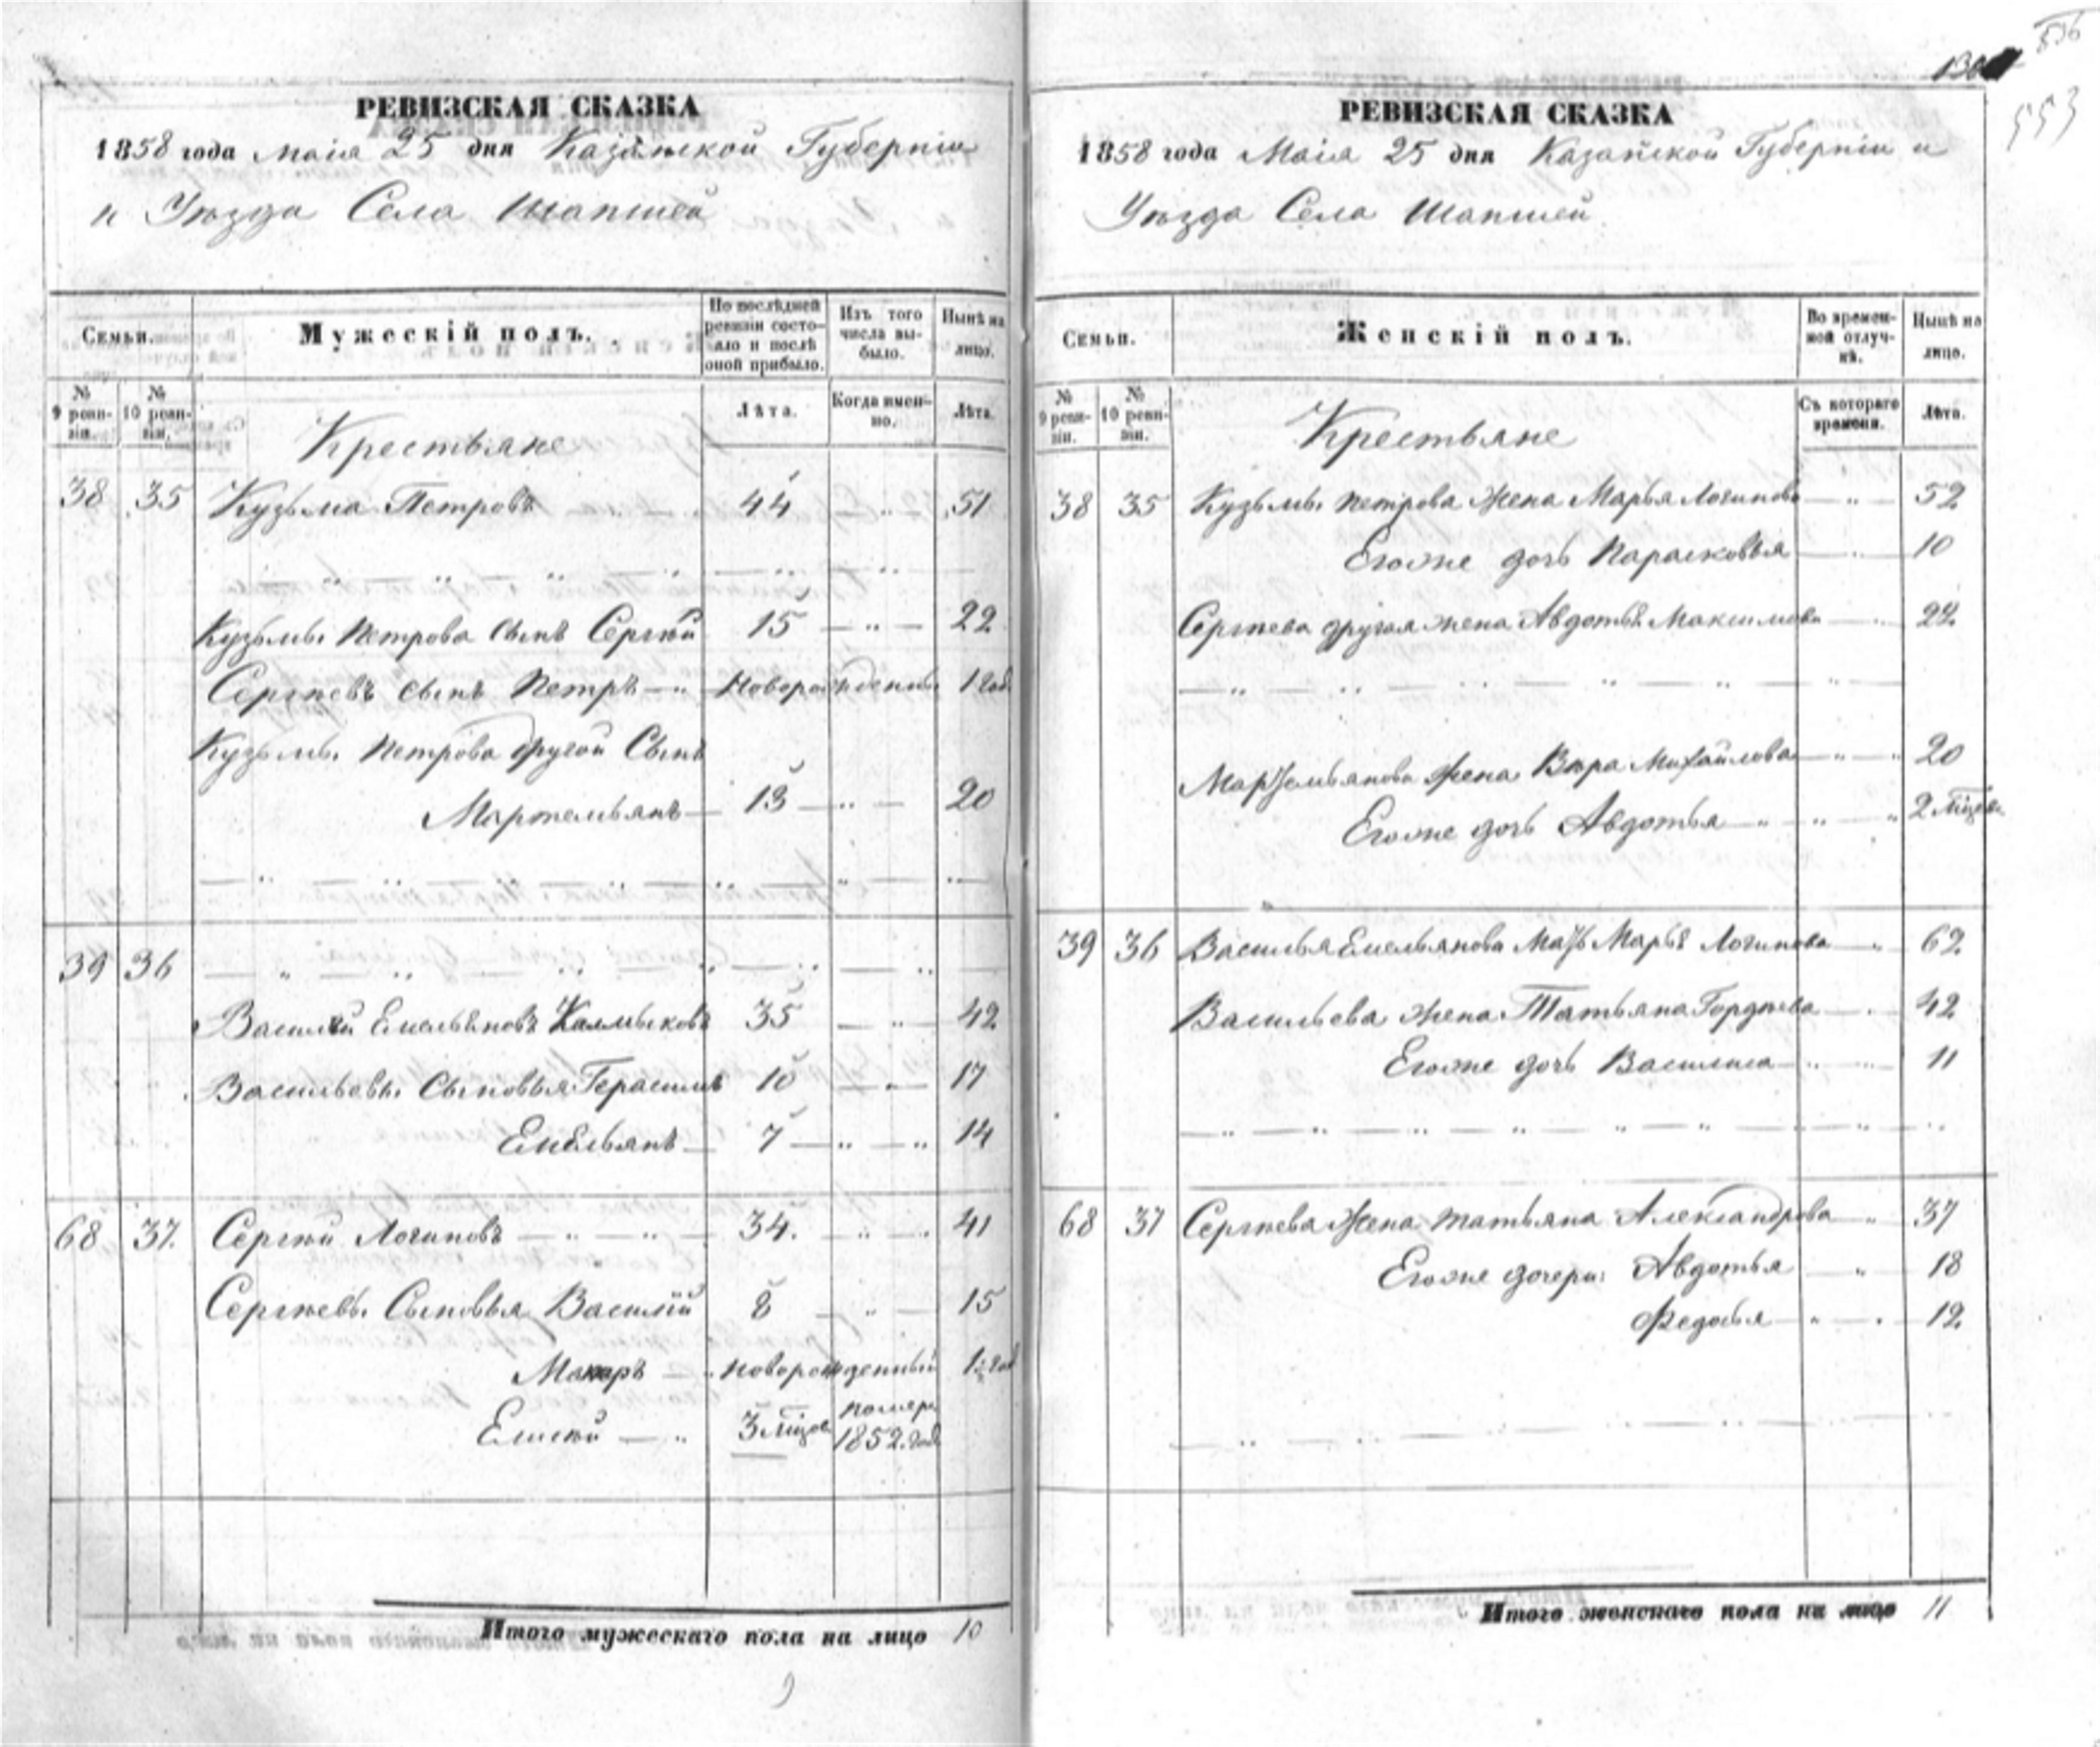 РЕВИЗСКАЯ СКАЗКА
1858 года Маія 25 дня Казанской Губерніи
и Уѣзда Села Шапшей
Семьи.
Мужескій полъ.
По послѣдней ревизіи состояло и послѣ оной прибыло.
Изъ того числа выбыло.
Нынѣ на лицо.
№ 9 ревизіи.
№ 10 ревизіи.
Лѣта.
Когда именно.
Лѣта.
Крестьяне
38 35 Кузьма Петровъ 44 51
Кузьмы Петрова сынъ Сергѣй 15 22
Сергѣевъ сынъ Петръ Новорожденный 1 год
Кузьмы Петрова другой Сынъ
Мартемьянъ 13 20
39 36
Василій Емельяновъ Калмыковъ 35 42
Васильевы Сыновья Герасимъ 10 17
Емельянъ 7 14
68 37. Сергѣй Логиновъ 34. 41
Сергѣевы Сыновья Василій 8 15
Макаръ новорожденный 1 год
Елисѣй 3 мѣсцов помер 1852. год
Итого мужескаго пола на лицо 10
556
553
РЕВИЗСКАЯ СКАЗКА
1858 года Маія 25 дня Казанской Губерніи и
Уѣзда Села Шапшей
Семьи.
Женскій полъ.
Во временной отлучкѣ.
Нынѣ на лицо.
№ 9 ревизіи.
№ 10 ревизіи.
Съ котораго времени.
Лѣта.
Крестьяне
38 35 Кузьмы Петрова Жена Марья Логинова 52
Егоже дочь Парасковья 10
Сергѣева другая жена Авдотья Максимова 22
Мартемьянова жена Вѣра Михайлова 20
Егоже дочь Авдотья 2 мѣсцов
39 36 Василья Емельянова Мать Марья Логинова 62
Васильева жена Татьяна Гордѣева 42
Егоже дочь Василиса 11
68 37 Сергѣева Жена Татьяна Александрова 37
Егоже дочери: Авдотья 18
Федосья 12
Итого женскаго пола на лицо 11